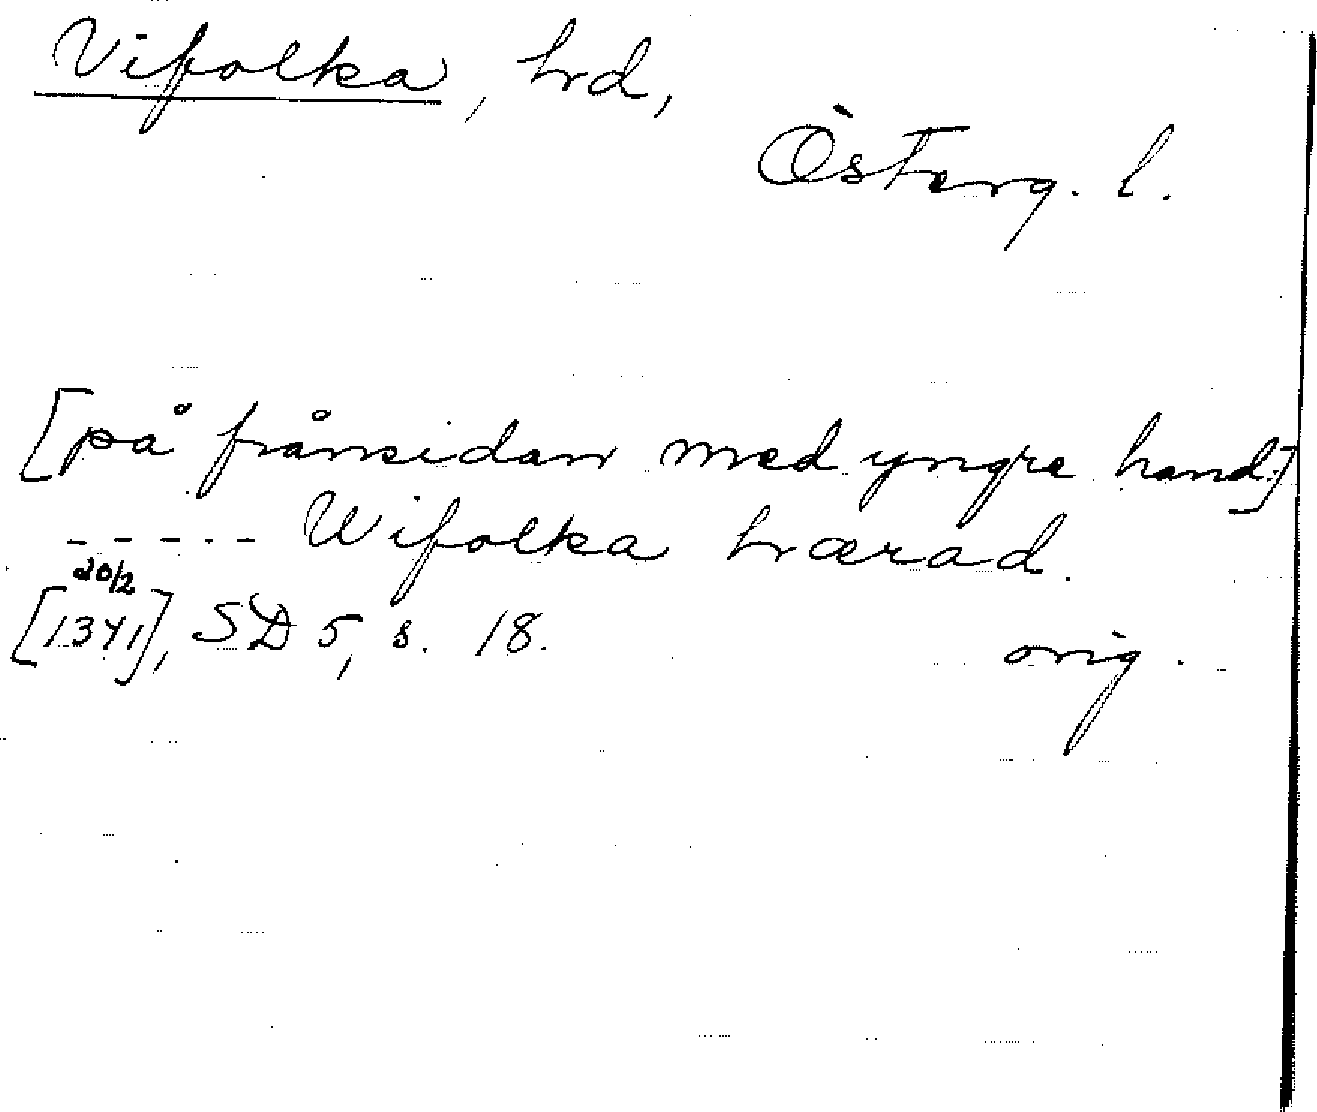 Vifolka, hrd,
Österg. l.
[på frånsidan med yngre hand:]
----- Wifolka hærad.
20/2
[1341], SD 5, s. 18.
orig.